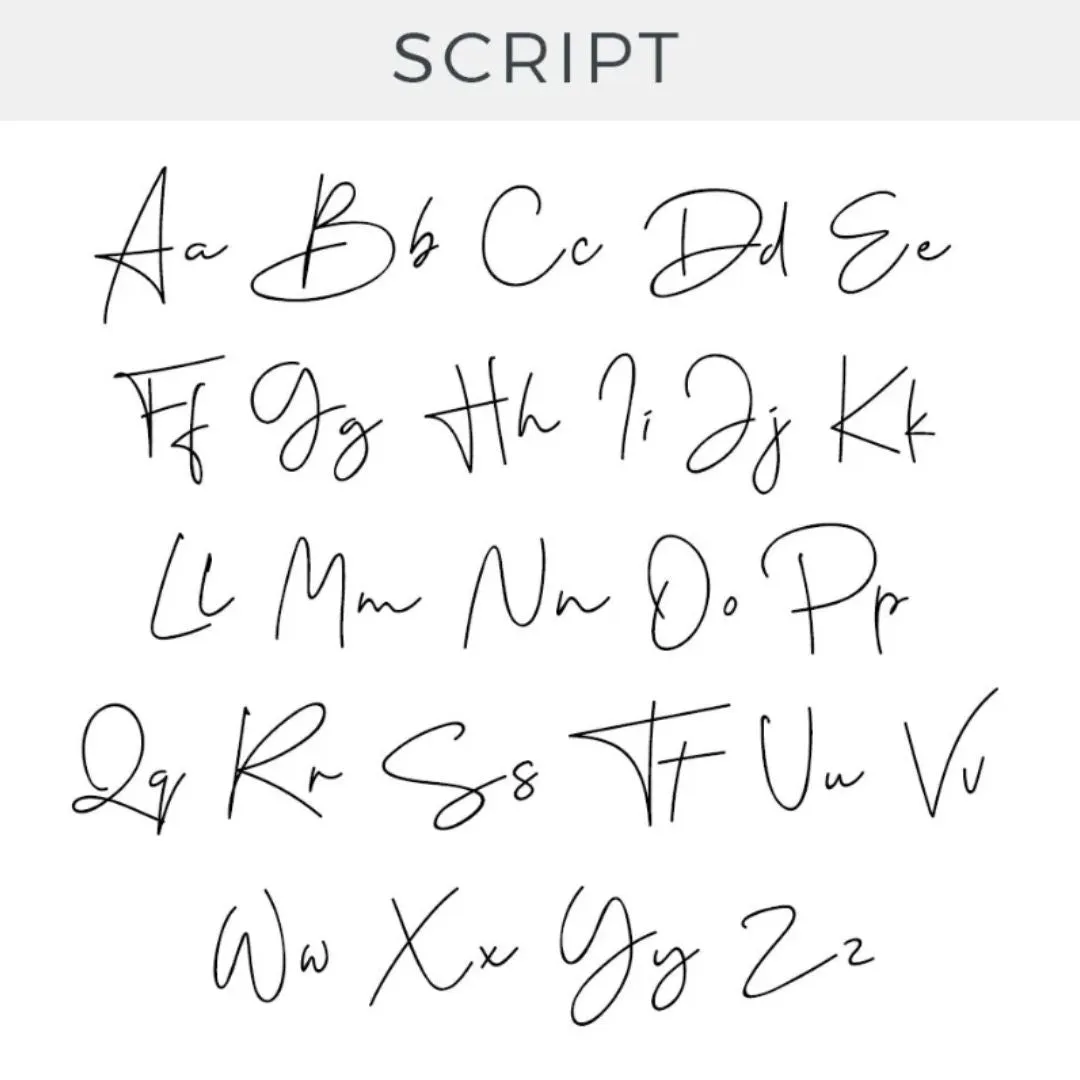 SCRIPT
Aa Bb Cc Dd Ee
Ff Gg Hh Ii Jj Kk
Ll Mm Nn Oo Pp
Qq Rr Ss Tt Uu Vv
Ww Xx Yy Zz